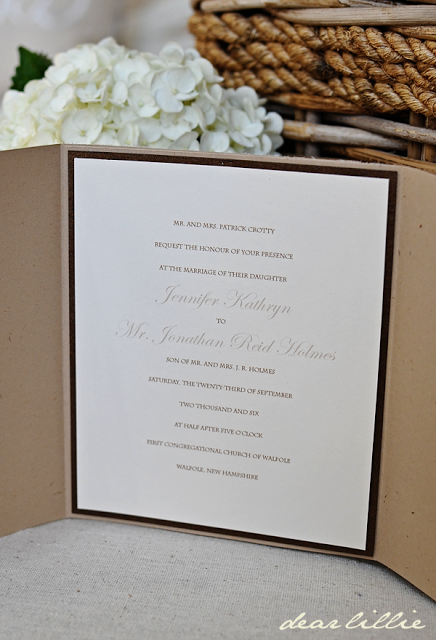 MR. AND MRS. PATRICK CROTTY
REQUEST THE HONOUR OF YOUR PRESENCE
AT THE MARRIAGE OF THEIR DAUGHTER
Jennifer Kathryn
TO
Mr. Jonathan Reid Holmes
SON OF MR. AND MRS. J. R. HOLMES
SATURDAY, THE TWENTY-THIRD OF SEPTEMBER
TWO THOUSAND AND SIX
AT HALF AFTER FIVE O'CLOCK
FIRST CONGREGATIONAL CHURCH OF WALPOLE
WALPOLE, NEW HAMPSHIRE
dear lillie